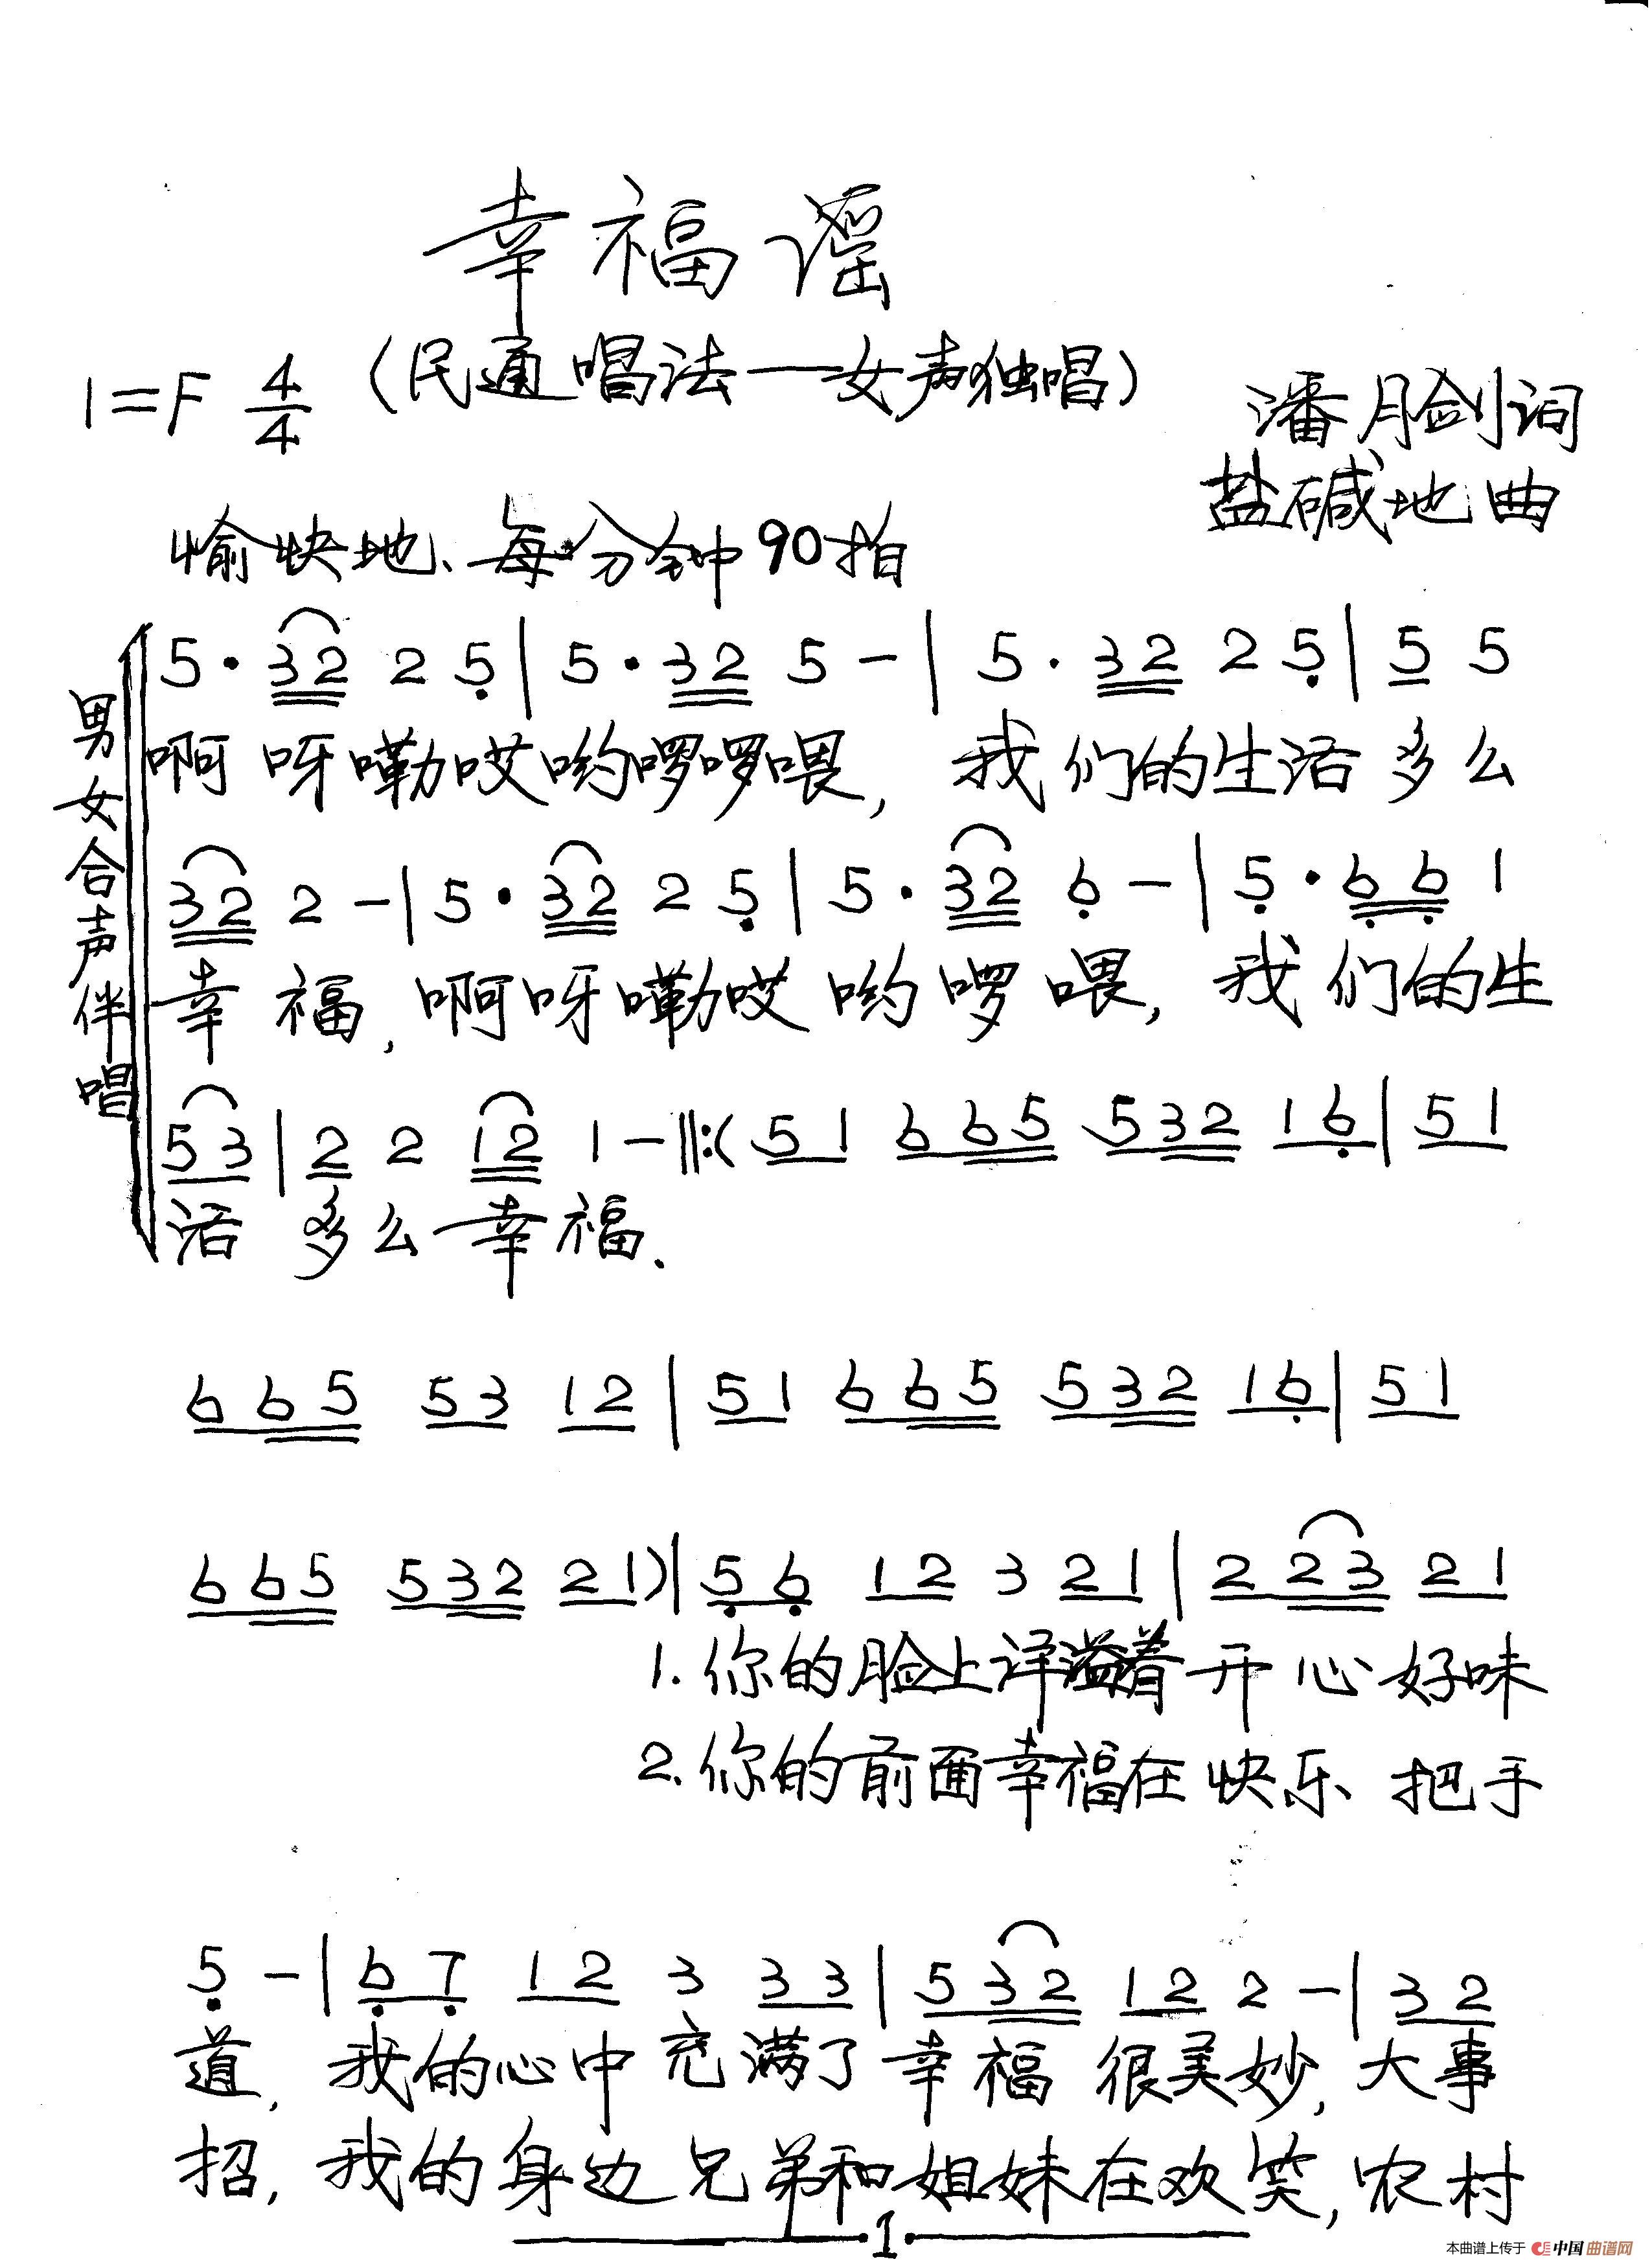 幸福谣
(民通唱法——女声独唱)
1=F 4/4
潘月剑词
盐碱地曲
愉快地、每分钟90拍
男女合声伴唱
5·32 2 5|5·32 5-|5·32 2 5|5 5
啊呀嘞哎哟啰啰喂,我们的生活多么
32 2-|5·32 2 5|5·32 6-|5·66 1
幸福,啊呀嘞哎哟啰喂,我们的生
53|2 2 12 1-‖:(51 665 532 16|51
活多么幸福.
665 53 12|51 665 532 16|51
665 532 21)|56 12 3 21|223 21
1.你的脸上洋溢着开心好味
2.你的前面幸福在快乐把手
5-|67 12 3 33|532 12 2-|32
道,我的心中充满了幸福很美妙,大事
招,我的身边兄弟和姐妹在欢笑,农村
·1·
本曲谱上传于 中国曲谱网